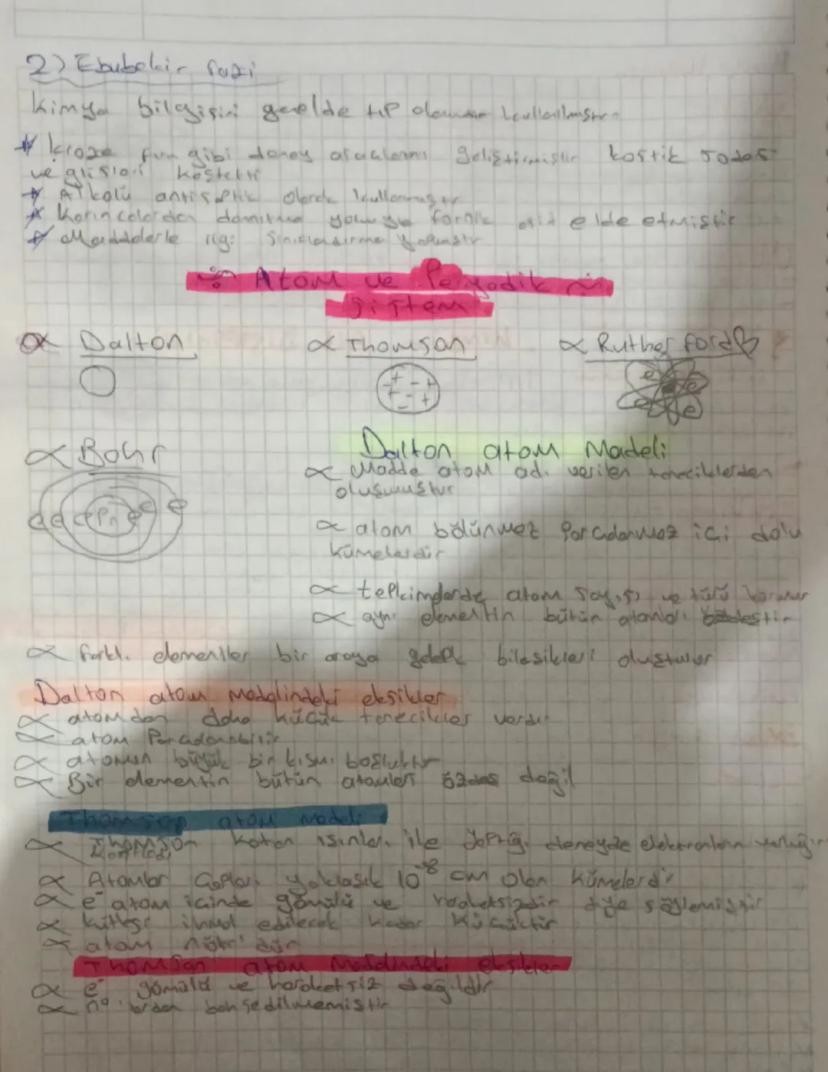 2) Ebubekir razi
Kimya bilgisini genelde tıp alanında kullanılmıştır.
* kroze fırın gibi deney araçlarını geliştirmiştir kostik sodayı
ve gliserini keşfetti
* Alkolü antiseptik olarak kullanmıştır
* Karıncalardan damıtma yoluyla formik asit elde etmiştir
* Maddelerle ilgi sınıflandırma yapmıştır
Atom ve Peryodik
Sistem
∝ Dalton ∝ Thomson ∝ Rutherford
+ - + -
+ - + -
e e e e
∝ Bohr
e e e Pn e e e
Dalton atom Modeli
∝ Madde atom adı verilen taneciklerden
oluşmuştur
∝ atom bölünmez parçalanmaz içi dolu
kümelerdir
∝ tepkimelerde atom sayısı ve türü korunur
∝ aynı elementin bütün atomları özdeştir
∝ farklı elementler bir araya gelerek bileşikleri oluşturur
Dalton atom modelindeki eksikler
∝ atomdan daha küçük tanecikler vardır
∝ atom Parçalanabilir
∝ atomun büyük bir kısmı boşluktur
∝ Bir elementin bütün atomları özdeş değil
Thomson atom modeli
∝ Thomson katot ışınları ile yaptığı deneyde elektronların varlığını
∝ Atomlar Çapları yaklaşık 10⁻⁸ cm olan kümelerdir
∝ e⁻ atom içinde gömülü ve hareketsizdir diye söylemiştir
∝ kütlesi ihmal edilecek kadar küçüktür
∝ atom nötr'dür
Thomson atom modelindeki eksikler
∝ e⁻ gömülü ve hareketsiz değildir
∝ n⁰'lardan bahsedilmemiştir